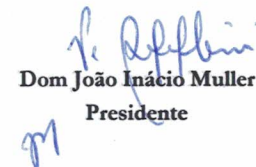 Dom João Inácio Muller
Presidente